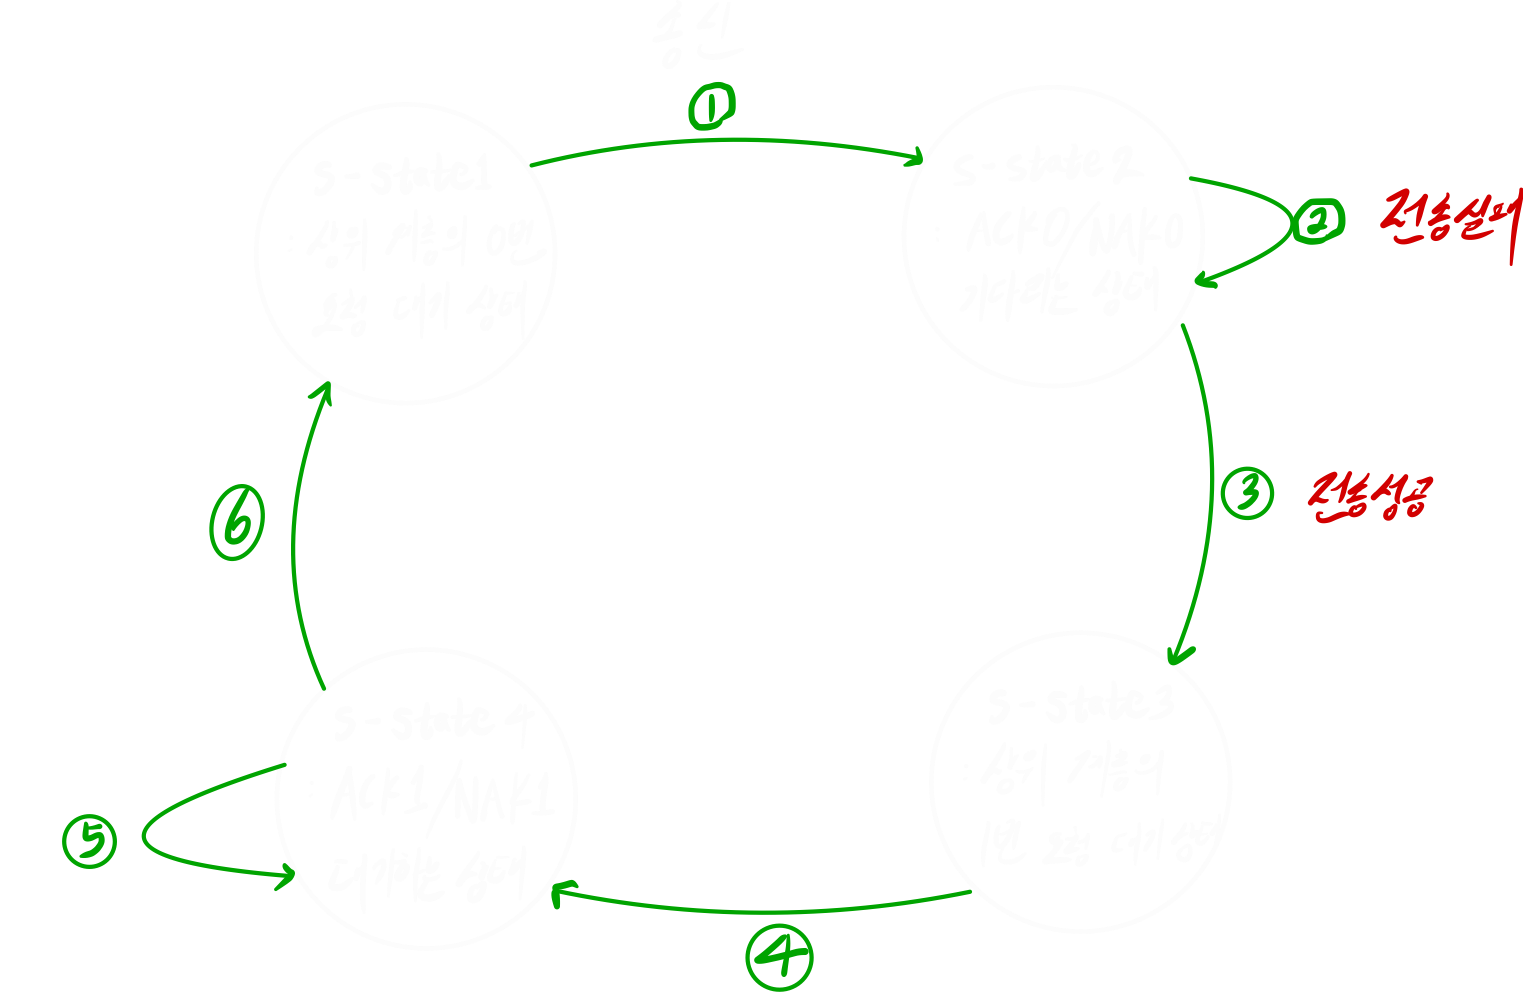 송신
①
S-state1
: 상위 계층의 0번
요청 대기 상태
S-state2
: ACK0/NAK0
기다리는 상태
② 전송실패
③ 전송성공
S-state3
: 상위 계층의
1번 요청 대기상태
④
S-state4
: ACK1/NAK1
대기하는 상태
⑤
⑥